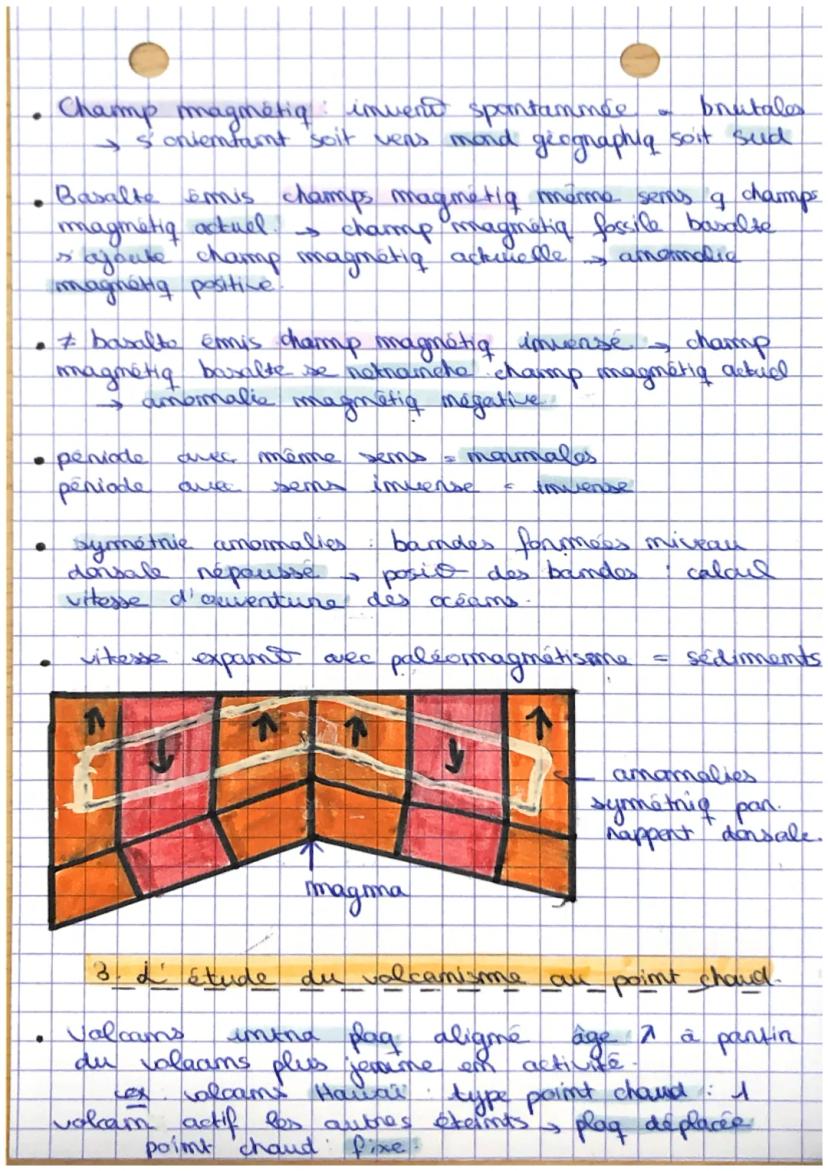 • Champ magnétiq : inverst° spontannée - brutales
→ s'orientant soit vers nord géographiq soit sud
• Basalte émis champs magnétiq même sens q champs
magnétiq actuel. → champ magnétiq fossile basalte
s'ajoute champ magnétiq actuelle → anomalie
magnétiq positive.
• ≠ basalte émis champ magnétiq inversé → champ
magnétiq basalte se retranche champ magnétiq actuel
→ anomalie magnétiq négative
• période avec même sens = normales
période avec sens inverse = inverse
• symétrie anomalies : bandes formées niveau
dorsale repoussé → posit° des bandes : calcul
vitesse d'ouverture des océans.
• vitesse expans° avec paléomagnétisme = sédiments
anomalies
symétriq par
rapport dorsale.
magma
3. L'étude du volcanisme au point chaud.
• Volcans intra plaq aligné âge ↗ à partir
du volcans plus jeune en activité.
ex : volcans Hawaï : type point chaud : 1
volcan actif les autres éteints → plaq déplacée
point chaud : fixe.